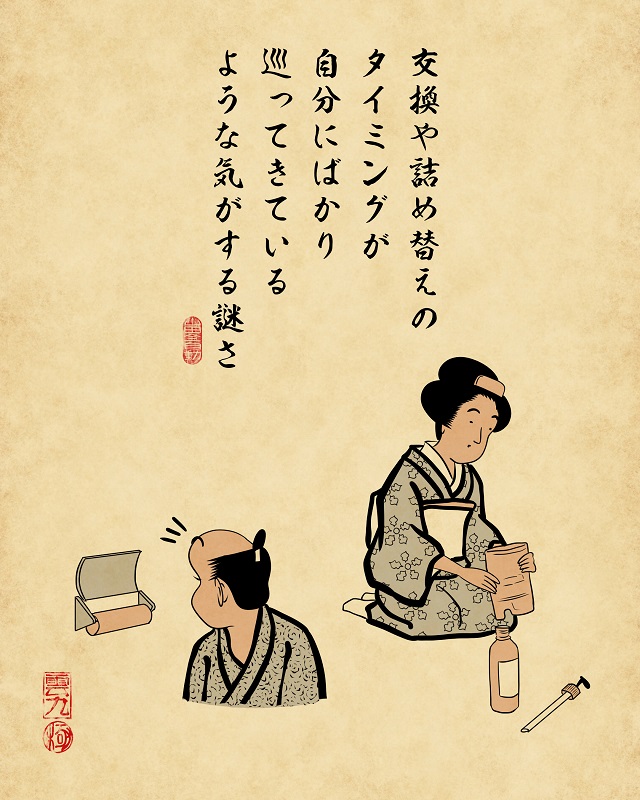 交換や詰め替えの
タイミングが
自分にばかり
巡ってきている
ような気がする謎さ